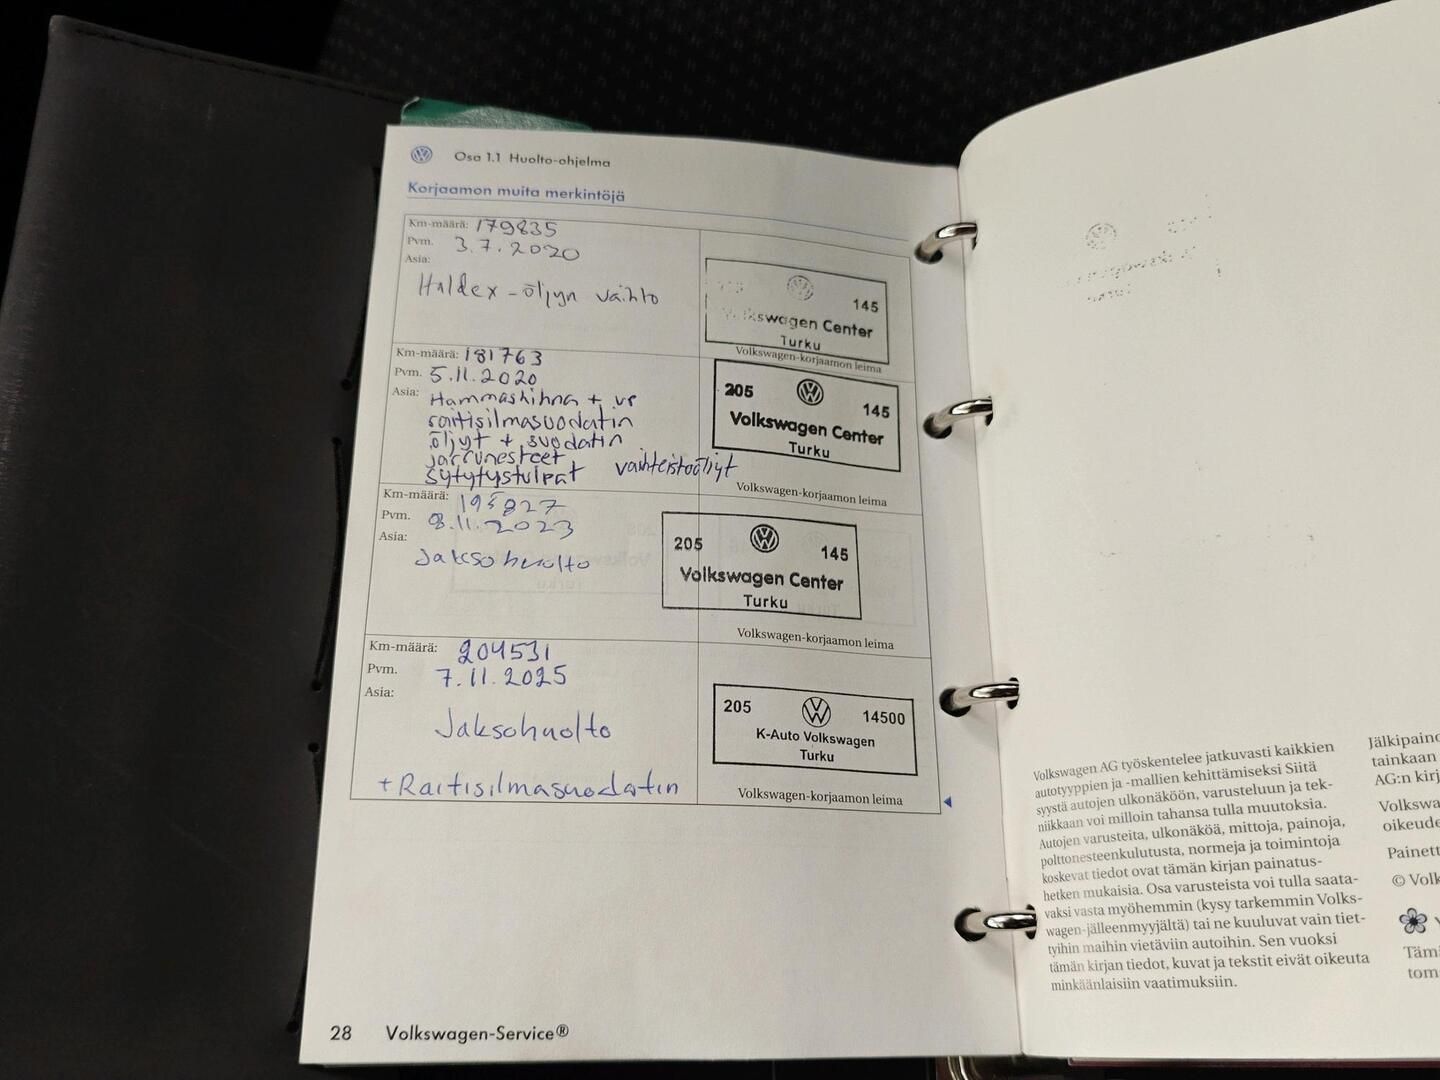 Osa 1.1 Huolto-ohjelma
Korjaamon muita merkintöjä
Km-määrä: 179835
Pvm. 3.7.2020
Asia:
Haldex-öljyn vaihto
145
Volkswagen Center
Turku
Volkswagen-korjaamon leima
Km-määrä: 181763
Pvm. 5.11.2020
Asia: Hammashihna + vp
raitisilmasuodatin
öljyt + suodatin
jarrunesteet
sytytystulpat vaihteistoöljyt
205 145
Volkswagen Center
Turku
Volkswagen-korjaamon leima
Km-määrä: 195827
Pvm. 8.11.2023
Asia:
Jaksohuolto
205 145
Volkswagen Center
Turku
Volkswagen-korjaamon leima
Km-määrä: 204531
Pvm. 7.11.2025
Asia:
Jaksohuolto
+Raitisilmasuodatin
205 14500
K-Auto Volkswagen
Turku
Volkswagen-korjaamon leima
28 Volkswagen-Service®
Volkswagen AG työskentelee jatkuvasti kaikkien
autotyyppien ja -mallien kehittämiseksi Siitä
syystä autojen ulkonäköön, varusteluun ja tek-
niikkaan voi milloin tahansa tulla muutoksia.
Autojen varusteita, ulkonäköä, mittoja, painoja,
polttonesteenkulutusta, normeja ja toimintoja
koskevat tiedot ovat tämän kirjan painatus-
hetken mukaisia. Osa varusteista voi tulla saata-
vaksi vasta myöhemmin (kysy tarkemmin Volks-
wagen-jälleenmyyjältä) tai ne kuuluvat vain tiet-
tyihin maihin vietäviin autoihin. Sen vuoksi
tämän kirjan tiedot, kuvat ja tekstit eivät oikeuta
minkäänlaisiin vaatimuksiin.
Jälkipaino
tainkaan
AG:n kirj
Volkswa
oikeude
Painett
© Volk
Y
Tämä
tom